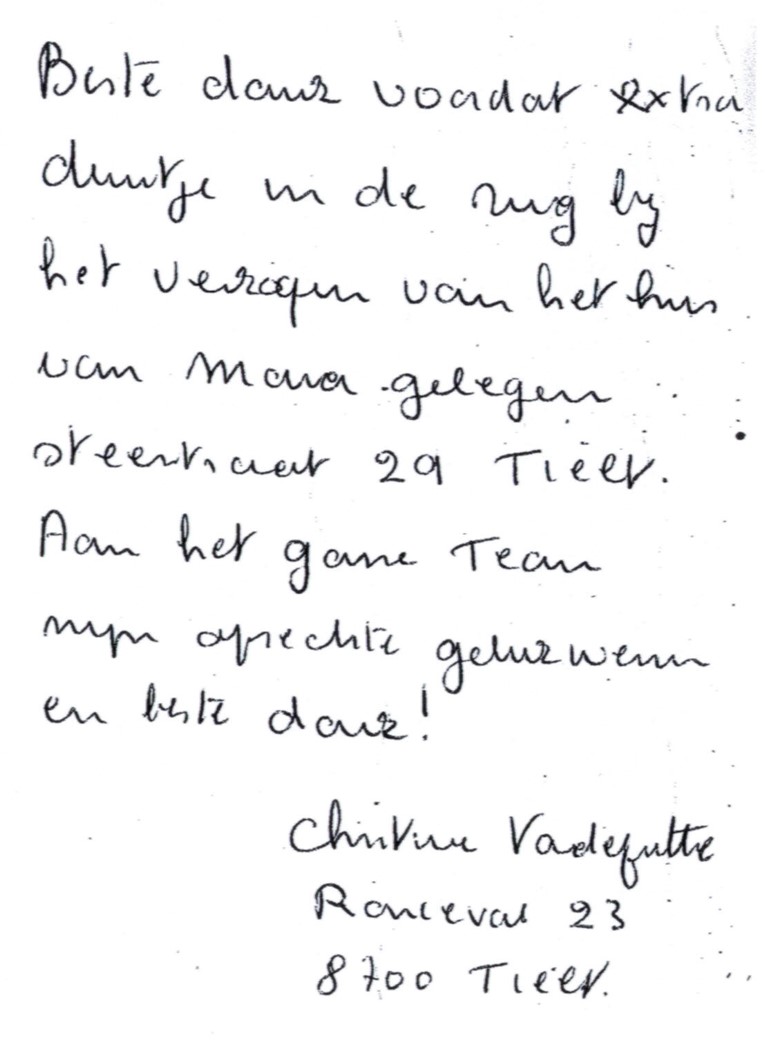 Beste dank voordat extra
duwtje in de rug bij
het verkopen van het huis
van Mama gelegen
steenstraat 29 Tielt.
Aan het ganse Team
mijn oprechte gelukwensen
en beste dank!
Christine Vadeputte
Ronceval 23
8700 Tielt.